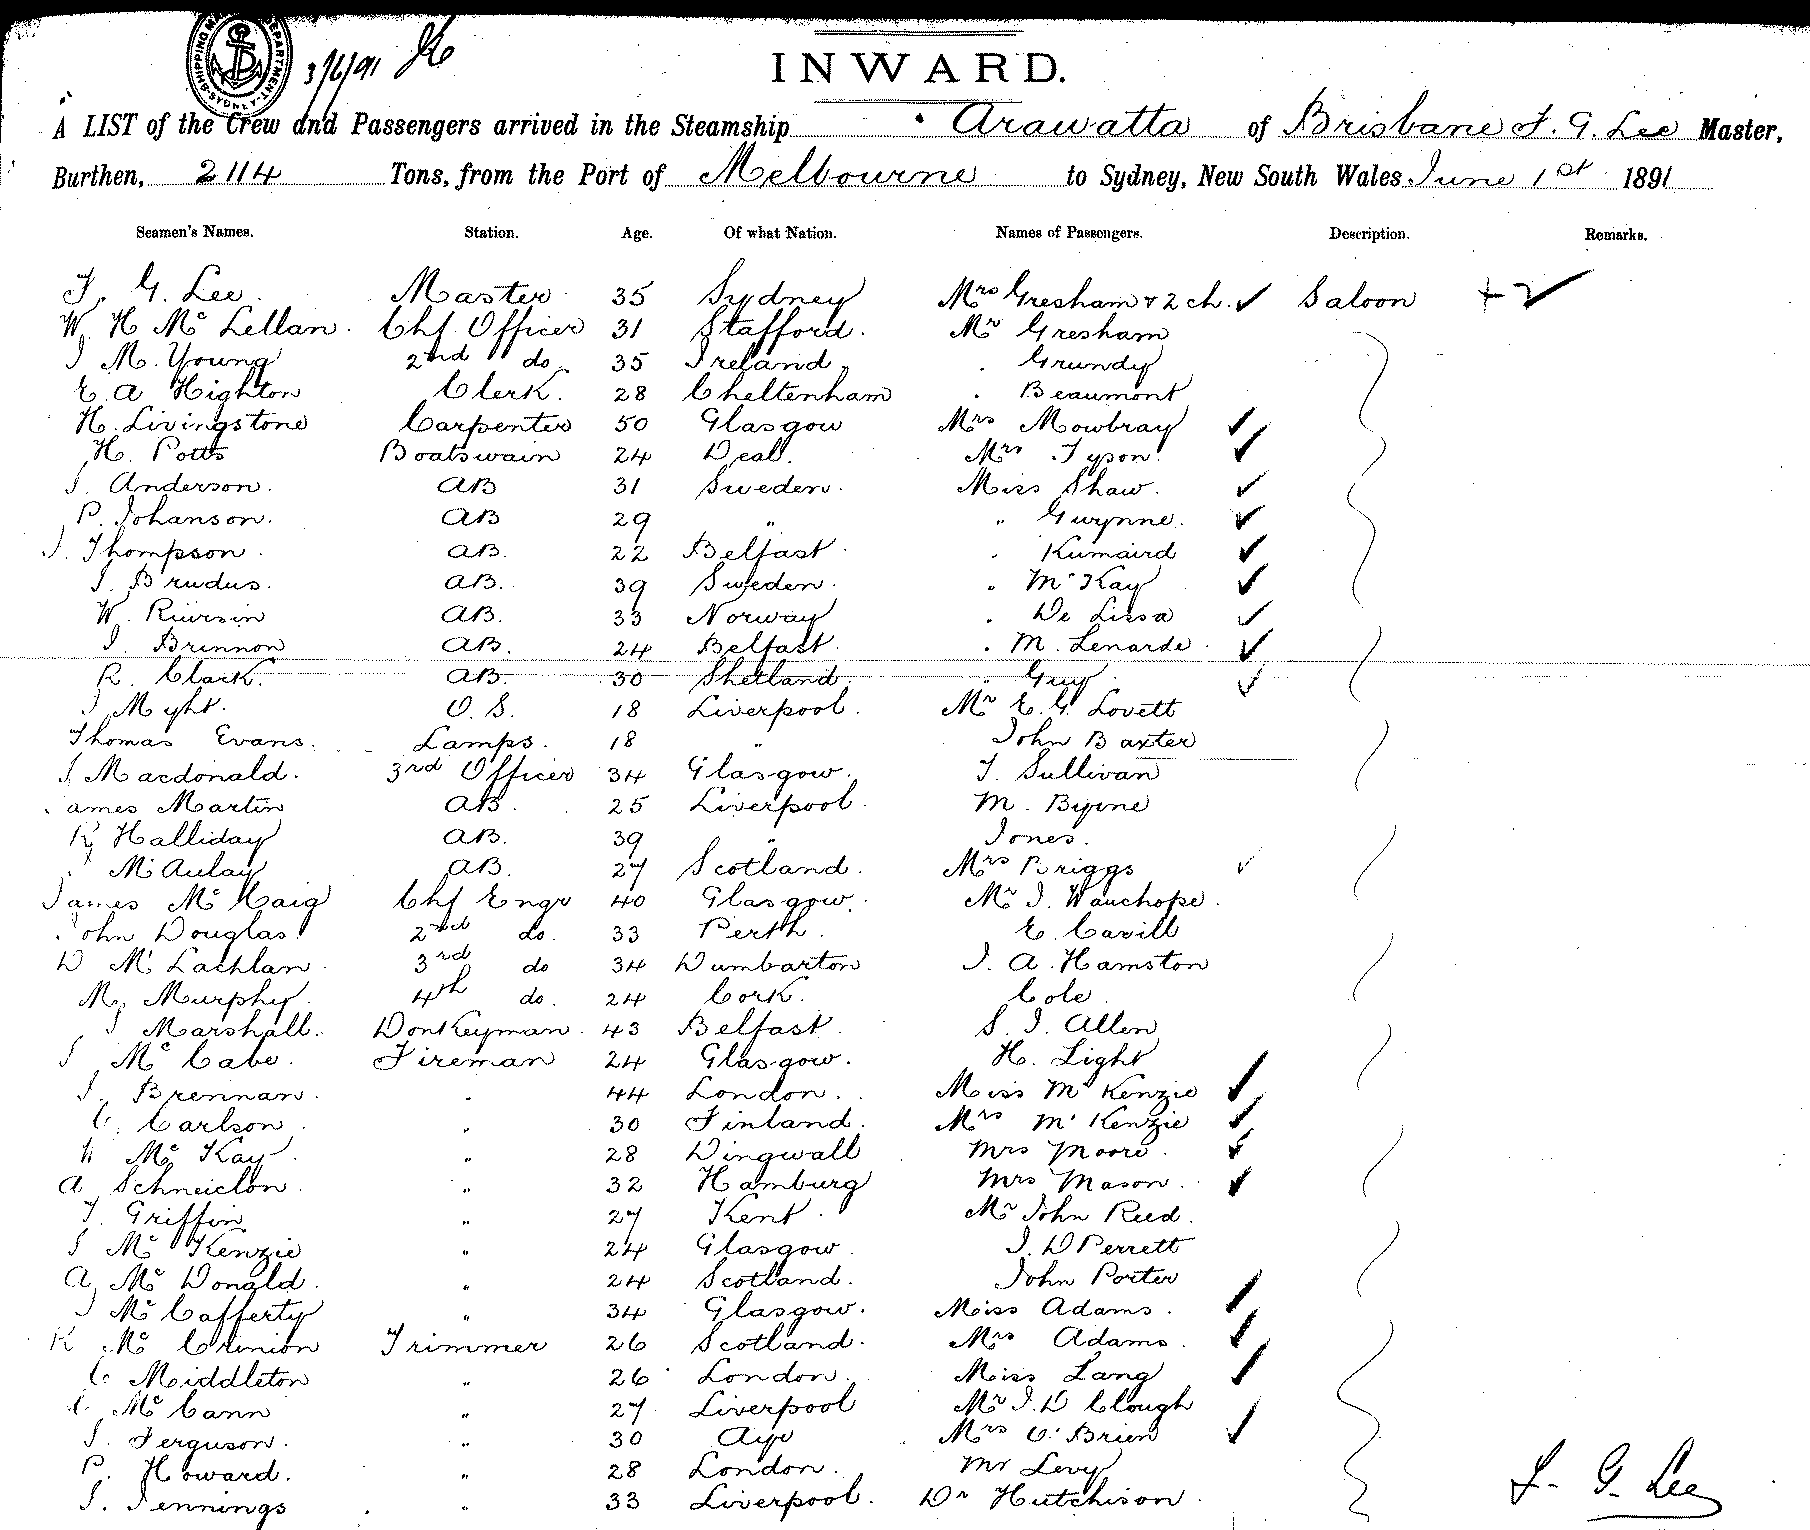 3/6/91
INWARD.
A LIST of the Crew and Passengers arrived in the Steamship Arawatta of Brisbane F. G. Lee Master,
Burthen, 2114 Tons, from the Port of Melbourne to Sydney, New South Wales June 1st 1891
Seamen's Names. Station. Age. Of what Nation. Names of Passengers. Description. Remarks.
F. G. Lee. Master 35 Sydney Mrs Gresham & 2 ch. ✓ Saloon + ✓
W. H Mc Lellan. Chf Officer 31 Stafford. Mr Gresham
J M. Young 2nd do 35 Ireland. Grundy
E. A Highton Clerk. 28 Cheltenham Beaumont
H. Livingstone Carpenter 50 Glasgow Mrs Mowbray ✓
H. Potts Boatswain 24 Deal. Mrs Tyson. ✓
J. Anderson. AB 31 Sweden. Miss Shaw. ✓
P. Johanson. AB 29 " " Gwynne. ✓
J. Thompson. AB. 22 Belfast. Kumaird ✓
J. Brudus. AB. 39 Sweden. McKay ✓
W. AB. 33 Norway De Lissa ✓
J. Brennon AB. 24 Belfast. M. Lenarde. ✓
R. Clark. AB. 30 Shetland. Guy ✓
J Myht. O. S. 18 Liverpool. Mr E. G. Lovett
Thomas Evans. Lamps. 18 " John Baxter
J Macdonald. 3rd Officer 34 Glasgow. T. Sullivan
James Martin AB. 25 Liverpool. M. Byrne
R Halliday AB. 39 " Jones.
McAulay AB. 27 Scotland. Mrs Briggs ✓
James Mc Caig Chf Engr 40 Glasgow. Mr J. Wauchope.
John Douglas 2nd do. 33 Perth. E. Cavill
D Mc Lachlan. 3rd do 34 Dumbarton J. A. Hamston
M. Murphy. 4th do. 24 Cork. Cole.
J Marshall. Donkeyman. 43 Belfast. S. J. Allen
J Mc Cabe. Fireman 24 Glasgow. H. Light
J. Brennan. " 44 London. Miss McKenzie ✓
C. Carlson. " 30 Finland. Mrs McKenzie ✓
W Mc Kay. " 28 Dingwall Mrs Moore. ✓
A Schneiclon. " 32 Hamburg Mrs Mason. ✓
T. Griffin " 27 Kent. Mr John Reed.
J Mc Kenzie " 24 Glasgow. J. D Perrett
A. Mc Donald. " 24 Scotland. John Porter
J Mc Cafferty " 34 Glasgow. Miss Adams. ✓
K Mc Crinion Trimmer 26 Scotland. Mrs Adams. ✓
C. Middleton " 26 London. Miss Lang ✓
C Mc Cann " 27 Liverpool Mr J. D Clough
J. Ferguson. " 30 Ayr Mrs O'Brien ✓
P. Howard. " 28 London. Mr Levy
J. Jennings " 33 Liverpool. Dr Hutchison.
F. G. Lee